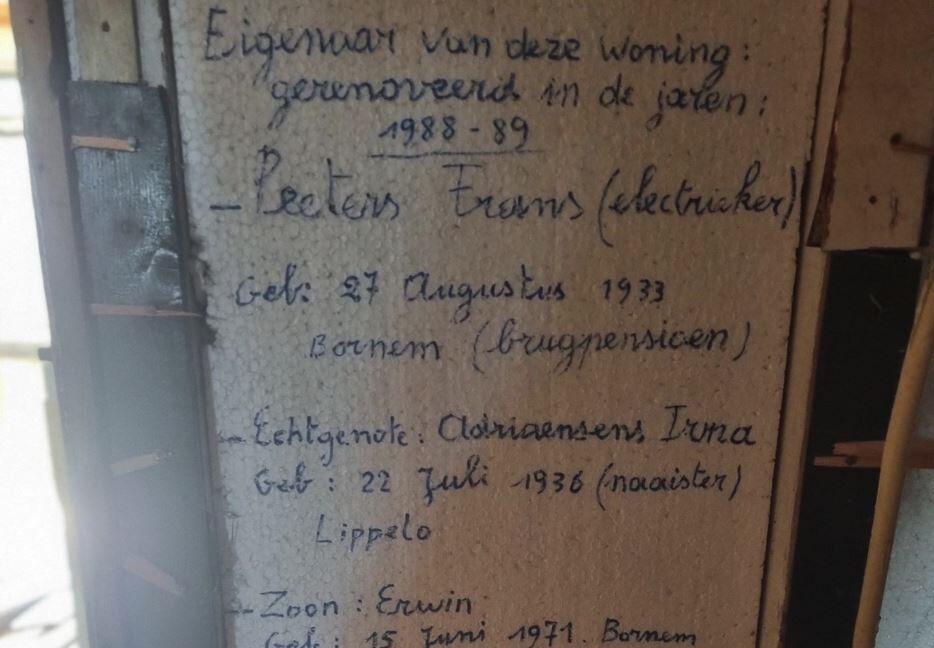 Eigenaar van deze woning:
gerenoveerd in de jaren:
1988-89
- Peeters Frans (electrieker)
Geb: 27 Augustus 1933
Bornem (brugpensioen)
- Echtgenote: Adriaensens Irma
Geb: 22 Juli 1936 (naaister)
Lippelo
- Zoon: Erwin
Geb: 15 Juni 1971. Bornem